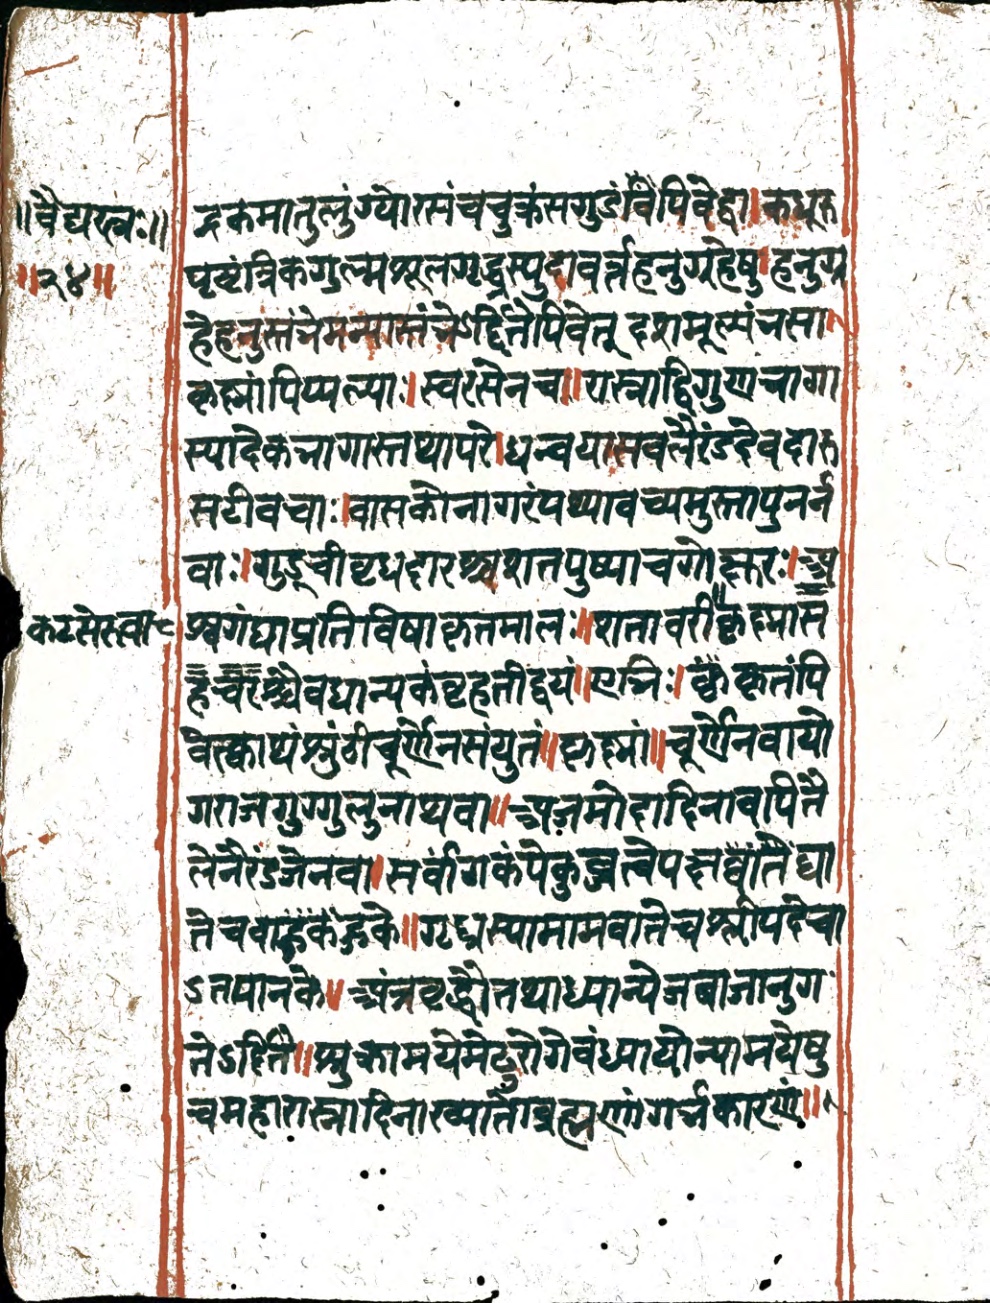 ॥वैद्यरत्नः॥
॥२४॥
द्रकमातुलुंग्योरसंचचुक्रंसगुडंवैपिवेद्वा।कट्यूरु
पृष्टंत्रिकगुल्मशूलगृद्ध्रस्युदावर्त्तहनुग्रहेषु।हनुग्र
हेहनुस्तंभेमन्यास्तंभेऽर्द्दितेपिवेत् दशमूल्यंनसा
कृष्मांपिप्पल्याः।स्वरसेनच॥रास्नाद्विगुणचागा
स्यादेकनागास्तथापरे।धन्वयासवलैरंडदेवदारु
सटीवचाः।वासकोनागरंपथ्यावच्यमुस्तापुनर्न
वाः।गुडूचीवृधदारश्चशतपुष्पाचगोक्षुरः।अ
कटसेरुवा
श्वगंधाप्रतिविषाकृतमालः॥शतावरीकृष्मास
हैचरश्चैवधान्यकंवृहतीद्वयं॥एभिः।कृतंपि
वेत्क्वाथंशुंठीचूर्णेनसंयुतं॥कृष्मां॥चूर्णेनवायो
गराजगुग्गुलुनाथवा॥अजमोदादिनावापितै
लेनैरंडजेनवा।सर्वांगकंपेकुब्जत्वेपक्षाघाते
तेचवाहुके॥गृध्रस्यामामवातेचश्लीपदेचा
ऽतपानके॥अंत्रवृद्धौतथाध्मान्येजंघाजानुग
तेऽर्दिते॥शुक्रामयेमेढ्ररोगेवंध्यायोन्यामयेषु
चमहारास्नादिनाख्यातोब्रह्मणांगर्भकारणं॥